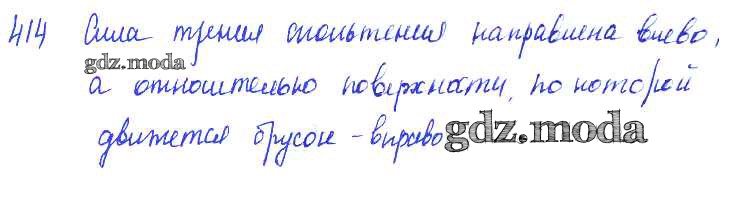 414 Сила трения скольжения направлена влево,
gdz.moda
а относительно поверхности, по которой
движется брусок - вправо
gdz.moda